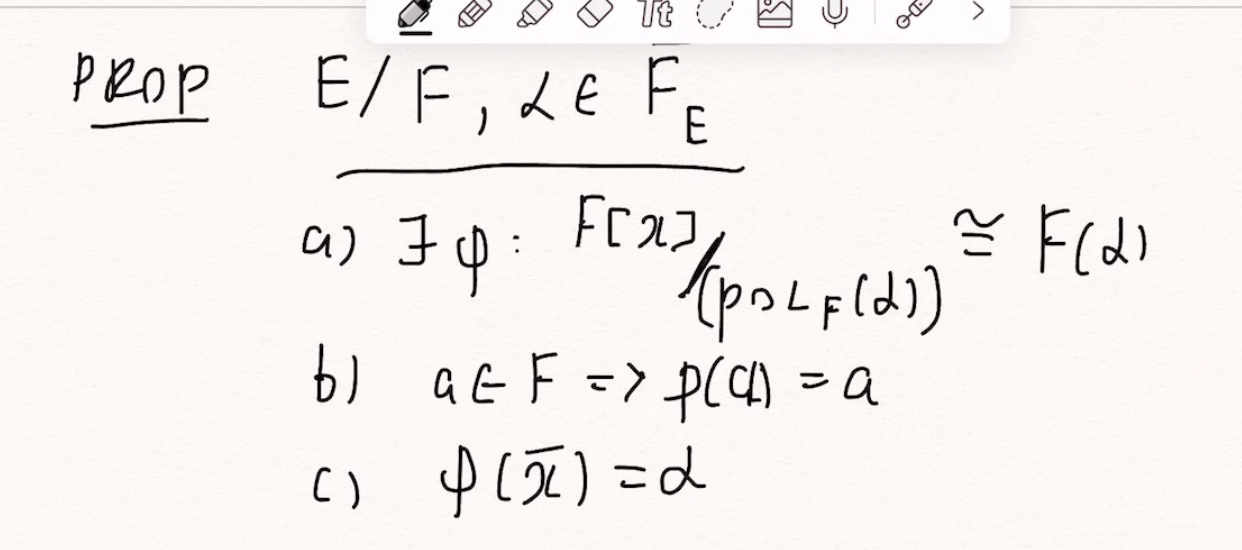 Tt
PROP E/F, α ∈ F̄_E
a) ∃ φ : F[x]/(POL_F(α)) ≅ F(α)
b) a ∈ F => φ(a) = a
c) φ(x̄) = α